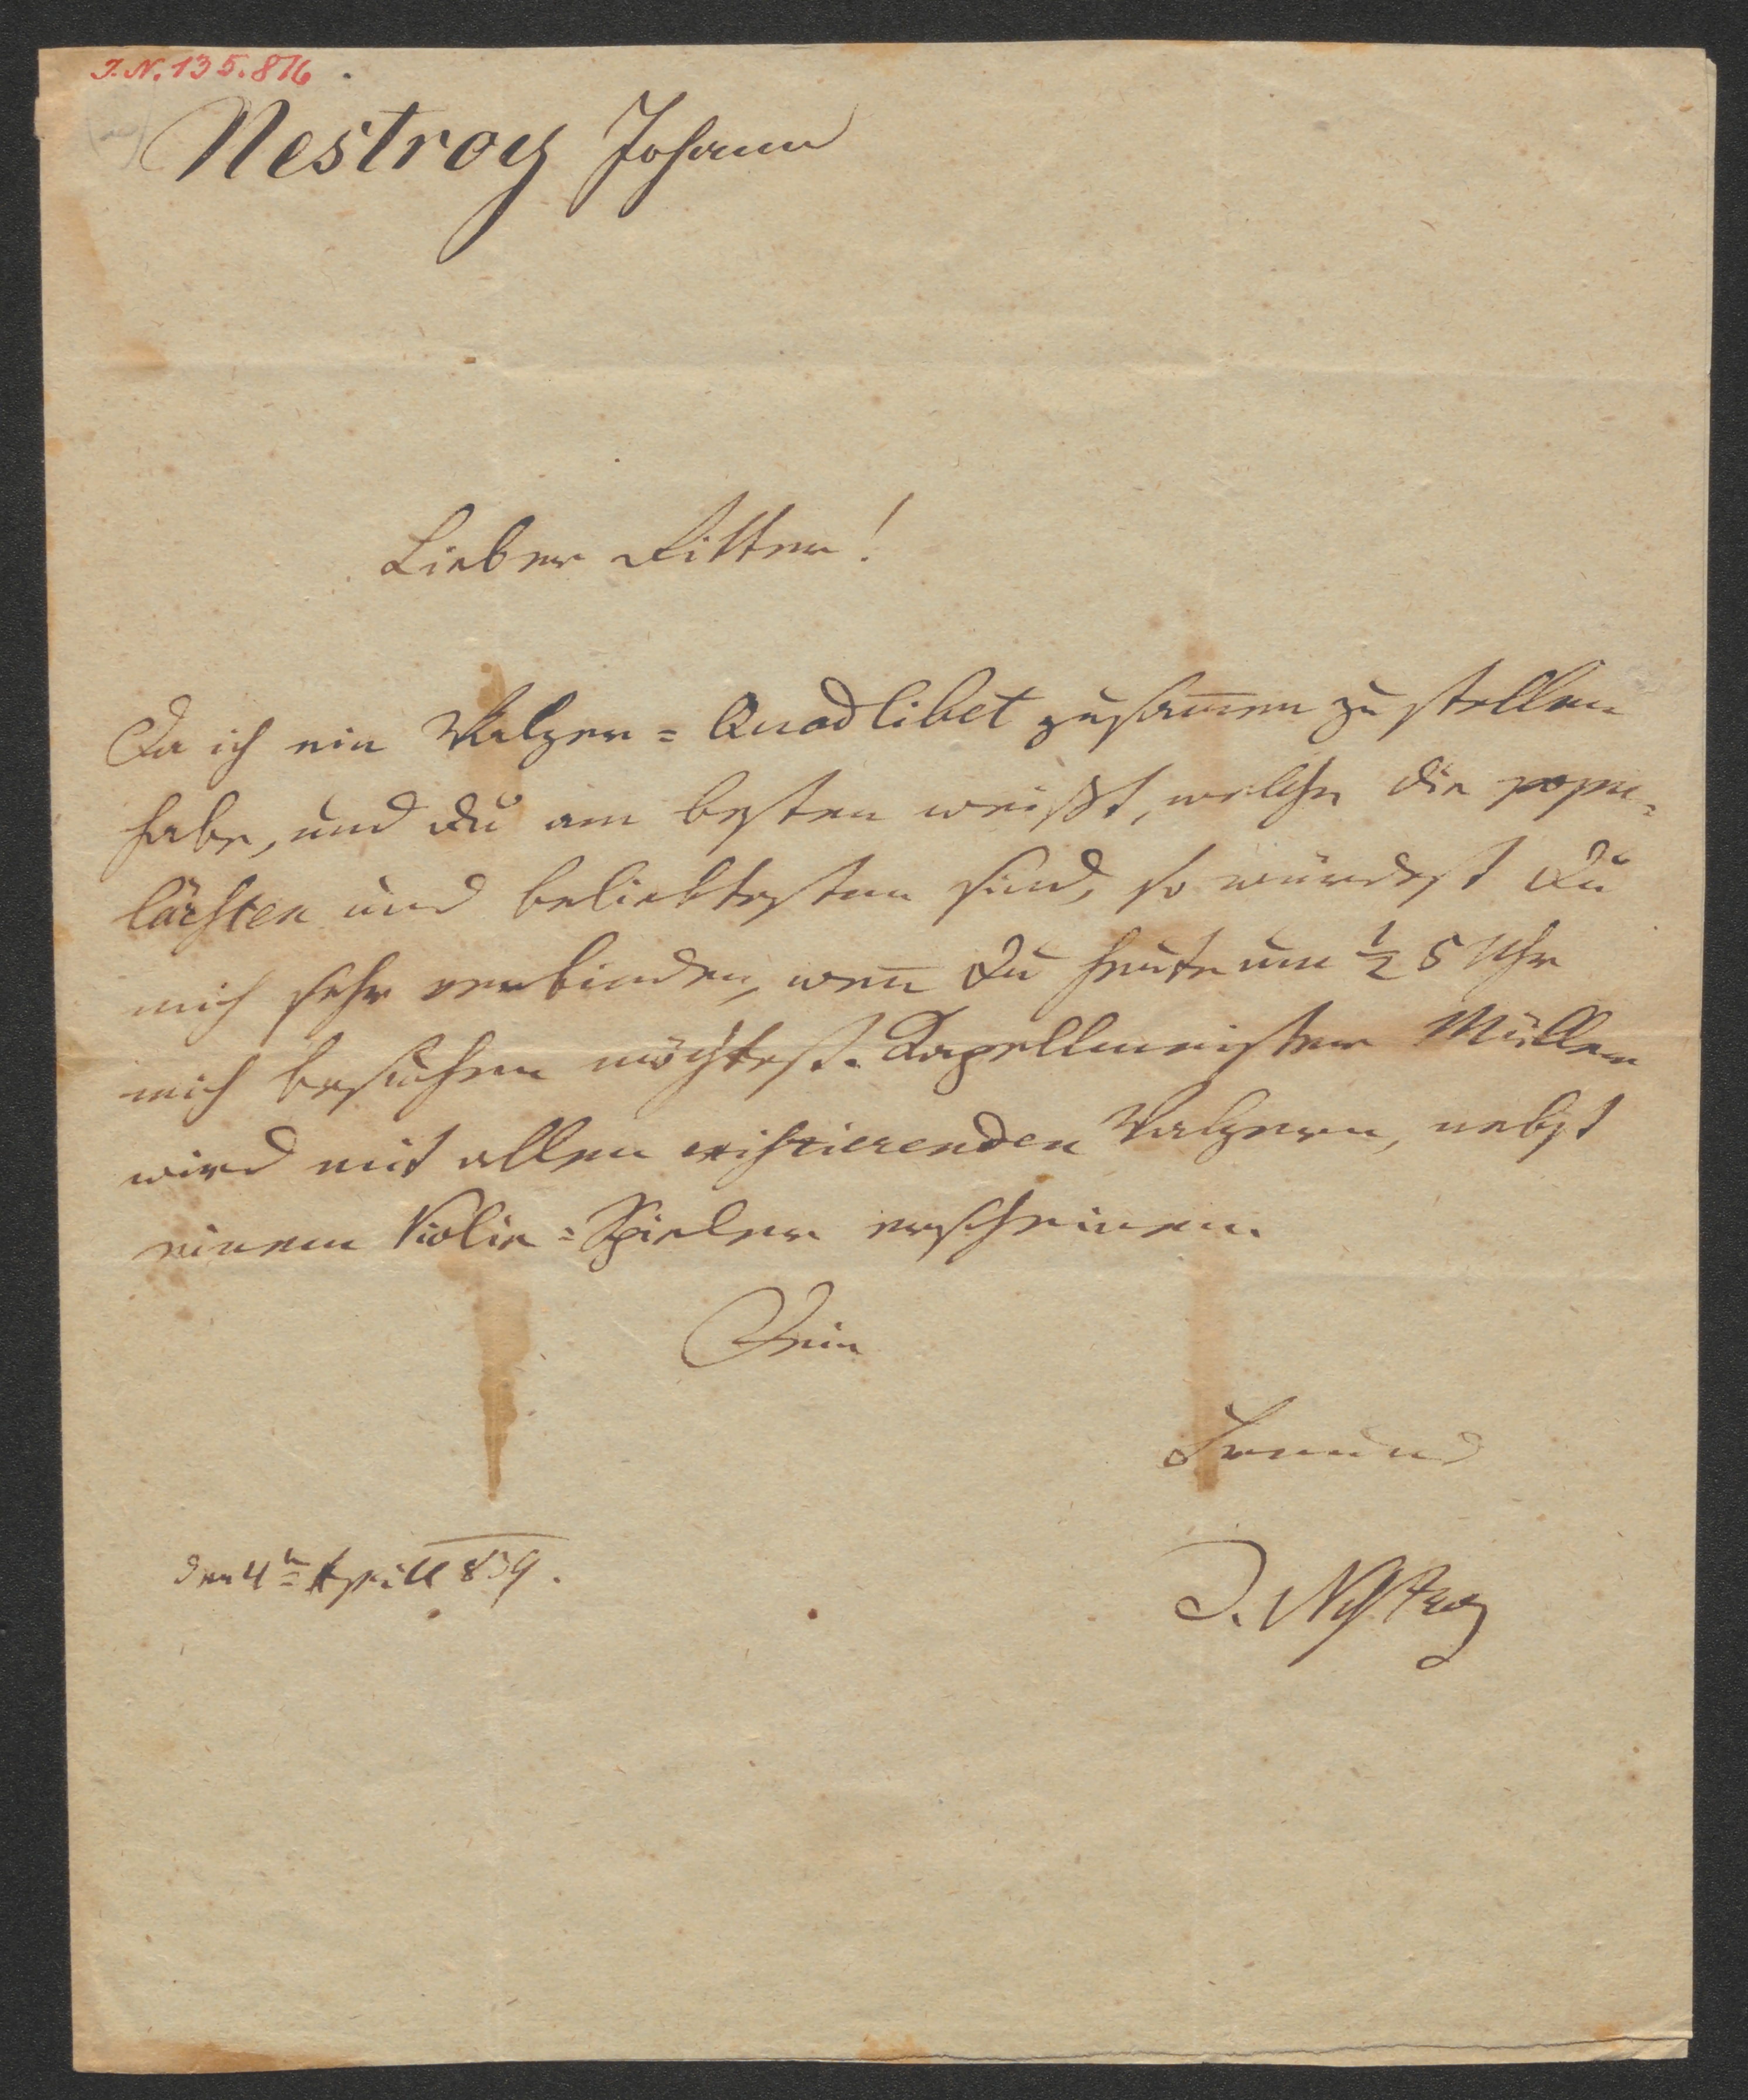 I.N. 135.876
Nestroy Johann
Lieber Ritter!
Da ich ein Walzer=Quodlibet zusam̅en zu stellen
habe, und Du am besten weißt, welche die popu=
lärsten und beliebtesten sind, so würdest Du
mich sehr verbinden, wen̅ Du heute um ½ 5 Uhr
mich besuchen möchtest. Kapellmeister Müller
wird mit allen existierenden Walzern, nebst
einem Violin=Spieler erscheinen.
Dein
Freund
den 4ᵗ Aprill 839.
J. Nestroy